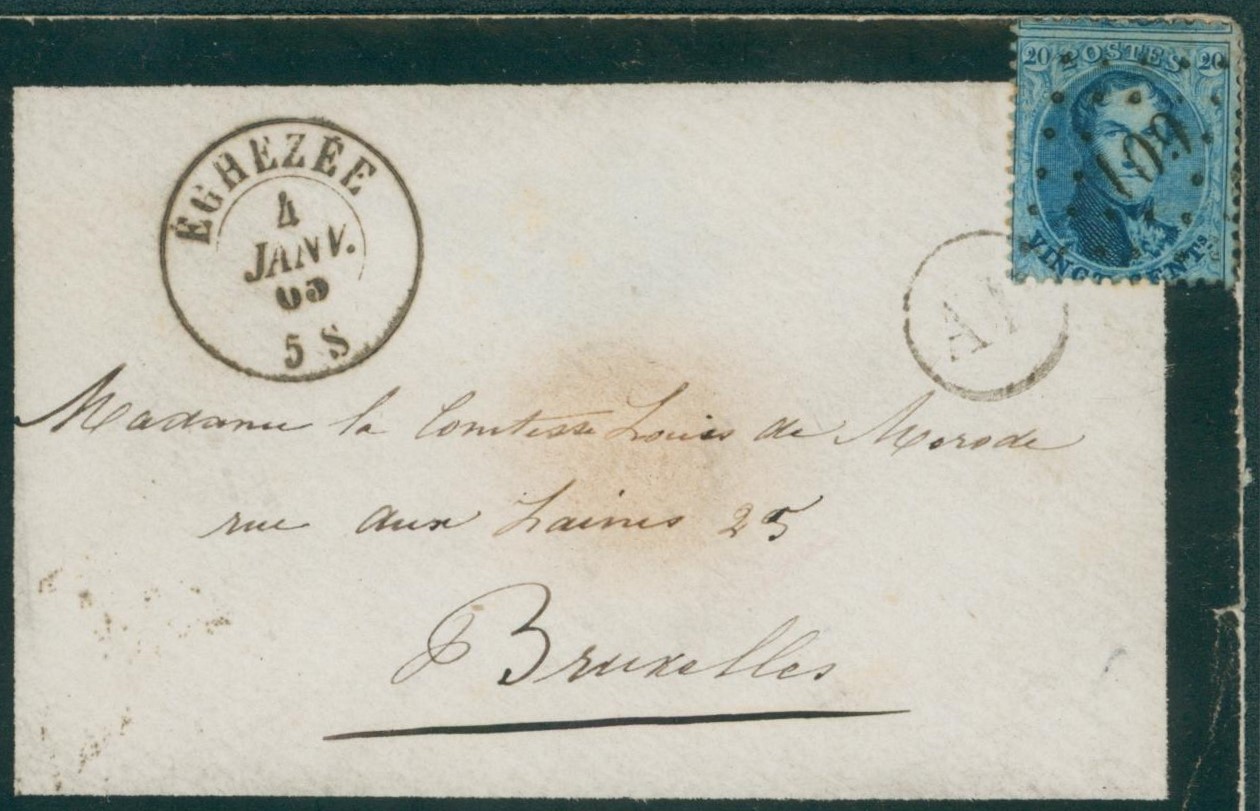 20 POSTES 20
109
VINGT CENTS
ÉGHEZÉE
4
JANV.
65
5 S
Madame la Comtesse Louis de Merode
rue aux Laines 25
Bruxelles